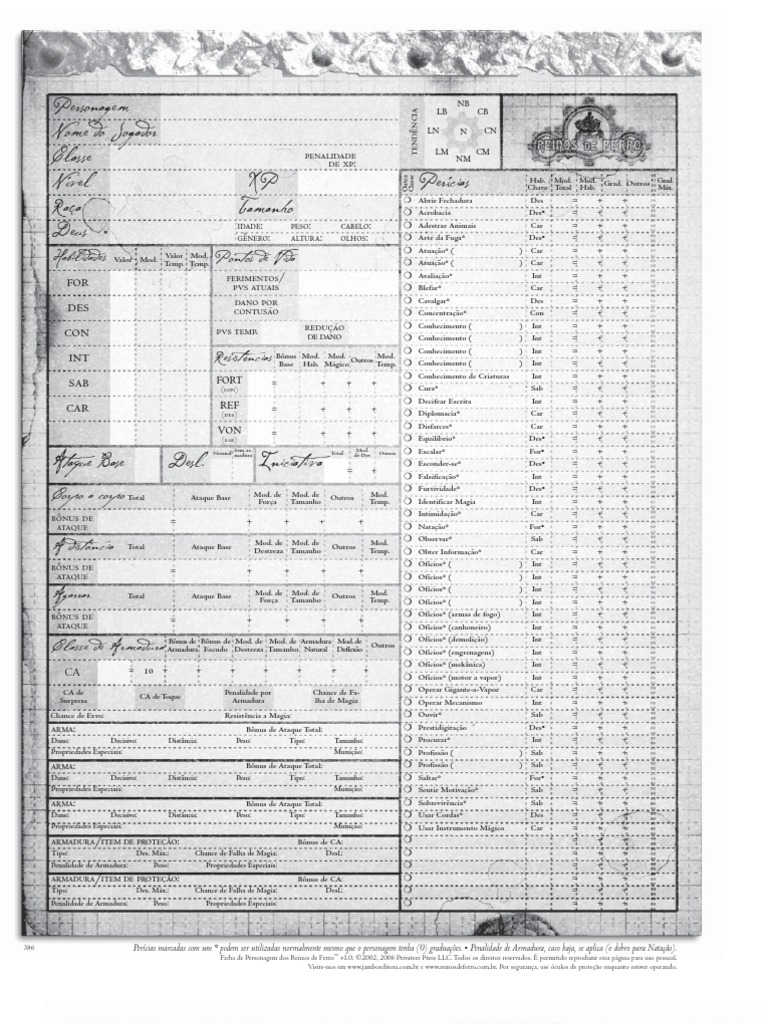 Personagem
Nome do Jogador
Classe
PENALIDADE DE XP:
Nível
XP
Raça
Tamanho
Deus
IDADE: PESO: CABELO:
GÊNERO: ALTURA: OLHOS:
TENDÊNCIA
NB
LB CB
LN N CN
LM CM
NM
REINOS DE FERRO
Habilidades Valor Mod. Valor Temp. Mod. Temp.
FOR
DES
CON
INT
SAB
CAR
Pontos de Vida
FERIMENTOS/
PVS ATUAIS
DANO POR
CONTUSÃO
PVS TEMP. REDUÇÃO DE DANO
Resistências Bônus Base Mod. Hab. Mod. Mágico Outros Mod. Temp.
FORT = + + +
(CON)
REF = + + +
(DES)
VON = + + +
(SAB)
Ataque Base
Desl. Normal
Iniciativa Total Mod. de Des Outros
= +
Corpo a corpo Total Ataque Base Mod. de Força Mod. de Tamanho Outros Mod. Temp.
BÔNUS DE ATAQUE = + + + +
A distância Total Ataque Base Mod. de Destreza Mod. de Tamanho Outros Mod. Temp.
BÔNUS DE ATAQUE = + + + +
Agarrar Total Ataque Base Mod. de Força Mod. de Tamanho Outros Mod. Temp.
BÔNUS DE ATAQUE = + + + +
Classe de Armadura Bônus de Armadura Bônus de Escudo Mod. de Destreza Mod. de Tamanho Armadura Natural Mod. de Deflexão Outros
CA = 10 + + + + + + +
CA de Surpresa CA de Toque Penalidade por Armadura Chance de Falha de Magia
Chance de Erro: Resistência a Magia:
ARMA: Bônus de Ataque Total:
Dano: Decisivo: Distância: Peso: Tipo: Tamanho:
Propriedades Especiais: Munição:
ARMA: Bônus de Ataque Total:
Dano: Decisivo: Distância: Peso: Tipo: Tamanho:
Propriedades Especiais: Munição:
ARMA: Bônus de Ataque Total:
Dano: Decisivo: Distância: Peso: Tipo: Tamanho:
Propriedades Especiais: Munição:
ARMADURA/ITEM DE PROTEÇÃO: Bônus de CA:
Tipo: Des. Máx.: Chance de Falha de Magia: Desl.:
Penalidade de Armadura: Peso: Propriedades Especiais:
ARMADURA/ITEM DE PROTEÇÃO: Bônus de CA:
Tipo: Des. Máx.: Chance de Falha de Magia: Desl.:
Penalidade de Armadura: Peso: Propriedades Especiais:
Outra Classe Perícias Hab. Chave Mod. Total Mod. Hab. Grad. Outros Grad. Máx.
Abrir Fechadura Des = + +
Acrobacia Des• = + +
Adestrar Animais Car = + +
Arte da Fuga* Des• = + +
Atuação* ( ) Car = + +
Atuação* ( ) Car = + +
Avaliação* Int = + +
Blefar* Car = + +
Cavalgar* Des = + +
Concentração* Con = + +
Conhecimento ( ) Int = + +
Conhecimento ( ) Int = + +
Conhecimento ( ) Int = + +
Conhecimento ( ) Int = + +
Conhecimento de Criaturas Int = + +
Cura* Sab = + +
Decifrar Escrita Int = + +
Diplomacia* Car = + +
Disfarces* Car = + +
Equilíbrio* Des• = + +
Escalar* For• = + +
Esconder-se* Des• = + +
Falsificação* Int = + +
Furtividade* Des• = + +
Identificar Magia Int = + +
Intimidação* Car = + +
Natação* For• = + +
Observar* Sab = + +
Obter Informação* Car = + +
Ofícios* ( ) Int = + +
Ofícios* ( ) Int = + +
Ofícios* ( ) Int = + +
Ofícios* ( ) Int = + +
Ofícios* (armas de fogo) Int = + +
Ofícios* (canhoneiro) Int = + +
Ofícios* (demolição) Int = + +
Ofícios* (engrenagens) Int = + +
Ofícios* (mekânica) Int = + +
Ofícios* (motor a vapor) Int = + +
Operar Gigante-a-Vapor Car = + +
Operar Mecanismo Int = + +
Ouvir* Sab = + +
Prestidigitação Des• = + +
Procurar* Int = + +
Profissão ( ) Sab = + +
Profissão ( ) Sab = + +
Saltar* For• = + +
Sentir Motivação* Sab = + +
Sobrevivência* Sab = + +
Usar Cordas* Des = + +
Usar Instrumento Mágico Car = + +
386
Perícias marcadas com um * podem ser utilizadas normalmente mesmo que o personagem tenha (0) graduações. • Penalidade de Armadura, caso haja, se aplica (o dobro para Natação).
Ficha de Personagem dos Reinos de Ferro™ v1.0. ©2002, 2006 Privateer Press LLC. Todos os direitos reservados. É permitido reproduzir essa página para uso pessoal.
Visite-nos em www.jamboeditora.com.br e www.reinosdeferro.com.br. Por segurança, use óculos de proteção enquanto estiver operando.